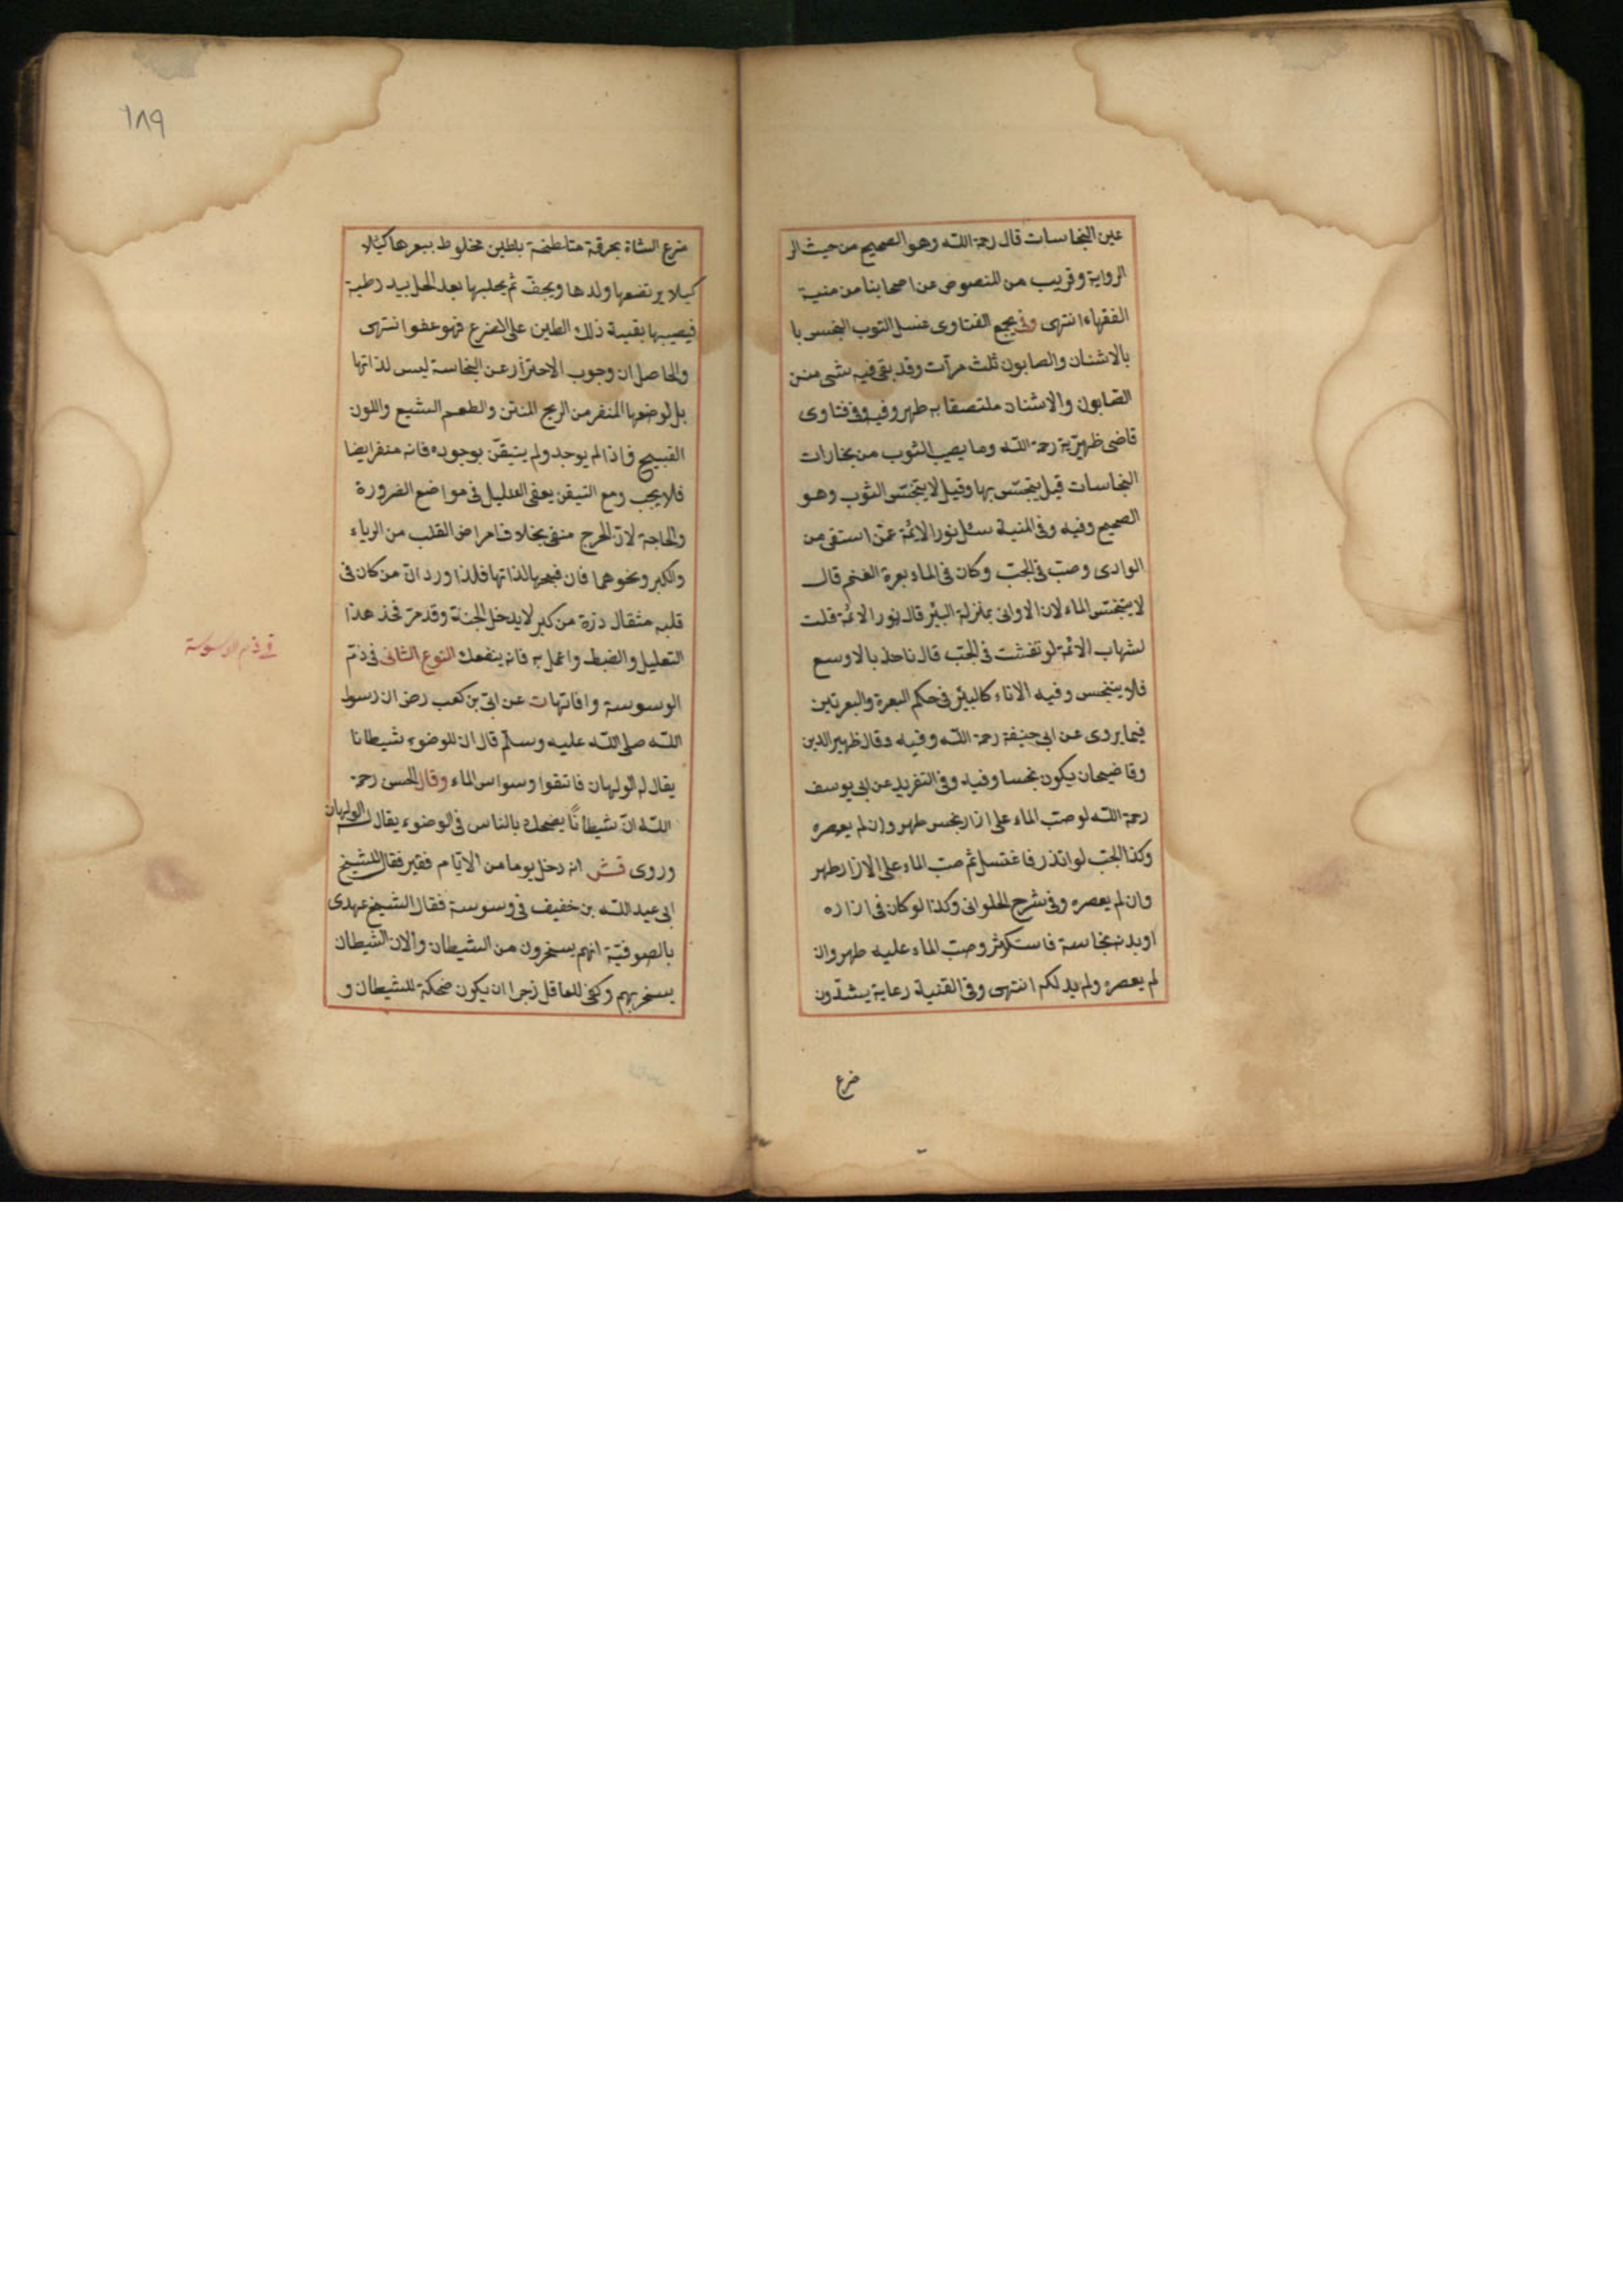 عين النجاسات قال رحمة الله وهو الصحيح من حيث الر
الرواية وقريب من المنصوص عن اصحابنا من منية
الفقهاء انتهى وفي مجمع الفتاوى غسل الثوب النجس با
بالاشنان والصابون ثلث مرات وقد بقى فيه شئ من
الصابون والاشنان ملتصقا به طهر وفيه وفى فتاوى
قاضى ظهيرية رحمة الله وما يصيب الثوب من بخارات
النجاسات قيل يتنجس بها وقيل لا يتنجس الثوب وهو
الصحيح وفيه وفى المنية سئل نور الائمة عمن استقى من
الوادى وصب فى الجب وكان فى الماء بعرة الغنم قال
لا يتنجس الماء لان الاوانى بمنزلة البئر قال نور الائمة قلت
لشهاب الائمة لو تفتتت فى الجب قال ناخذ بالاوسع
فلا يتنجس وفيه الاناء كالبئر فى حكم البعرة والبعرتين
فيما يروى عن ابى حنيفة رحمة الله وفيه وقال ظهير الدين
وقاضيخان يكون نجسا وفيه وفى التفريد عن ابى يوسف
رحمة الله لو صب الماء على ازار نجس طهر وان لم يعصره
وكذا الجنب لو اتزر فاغتسل ثم صب الماء على الازار طهر
وان لم يعصره وفى شرح الحلوانى وكذا لو كان فى ازاره
او بدنه نجاسة فاستكثر وصب الماء عليه طهر وان
لم يعصره ولم يدلكه انتهى وفى القنية رعاية يشدون
ضرع
١٨٩
ضرع الشاة بخرقة متلطخة بالطين مخلوط ببعرها كيلا
كيلا يرتضعها ولدها ويجف ثم يحلبها بعد الحل بيد رطبة
فيصيبها بقية ذلك الطين على الضرع فهو عفو انتهى
والحاصل ان وجوب الاحتراز عن النجاسة ليس لذاتها
بل لوضعها المنفر من الريح المنتن والطعم البشيع واللون
القبيح فاذا لم يوجد ولم يتيقن بوجوده فانه منفر ايضا
فلا يجب ومع التيقن يعفى القليل فى مواضع الضرورة
والحاجة لان الحرج منفى بخلاف امراض القلب من الرياء
والكبر ونحوهما فان قبحها لذاتها فلذا ورد ان من كان فى
قلبه مثقال ذرة من كبر لا يدخل الجنة وقد مر فخذ هذا
التعليل والضبط واعمل به فانه ينفعك النوع الثانى فى ذم
فى ذم الوسوسة
الوسوسة وافاتها ت عن ابى بن كعب رضى ان رسول
الله صلى الله عليه وسلم قال ان للوضوء شيطانا
يقال له الولهان فاتقوا وسواس الماء وقال الحسن رحمة
الله ان شيطانا يضحك بالناس فى الوضوء يقال له الولهان
وروى قش انه دخل يوما من الايام فقير فقال للشيخ
ابى عبد الله بن خفيف فى وسوسة فقال الشيخ عهدى
بالصوفية انهم يسخرون من الشيطان والان الشيطان
يسخر بهم وكفى للعاقل زجرا ان يكون ضحكة للشيطان و